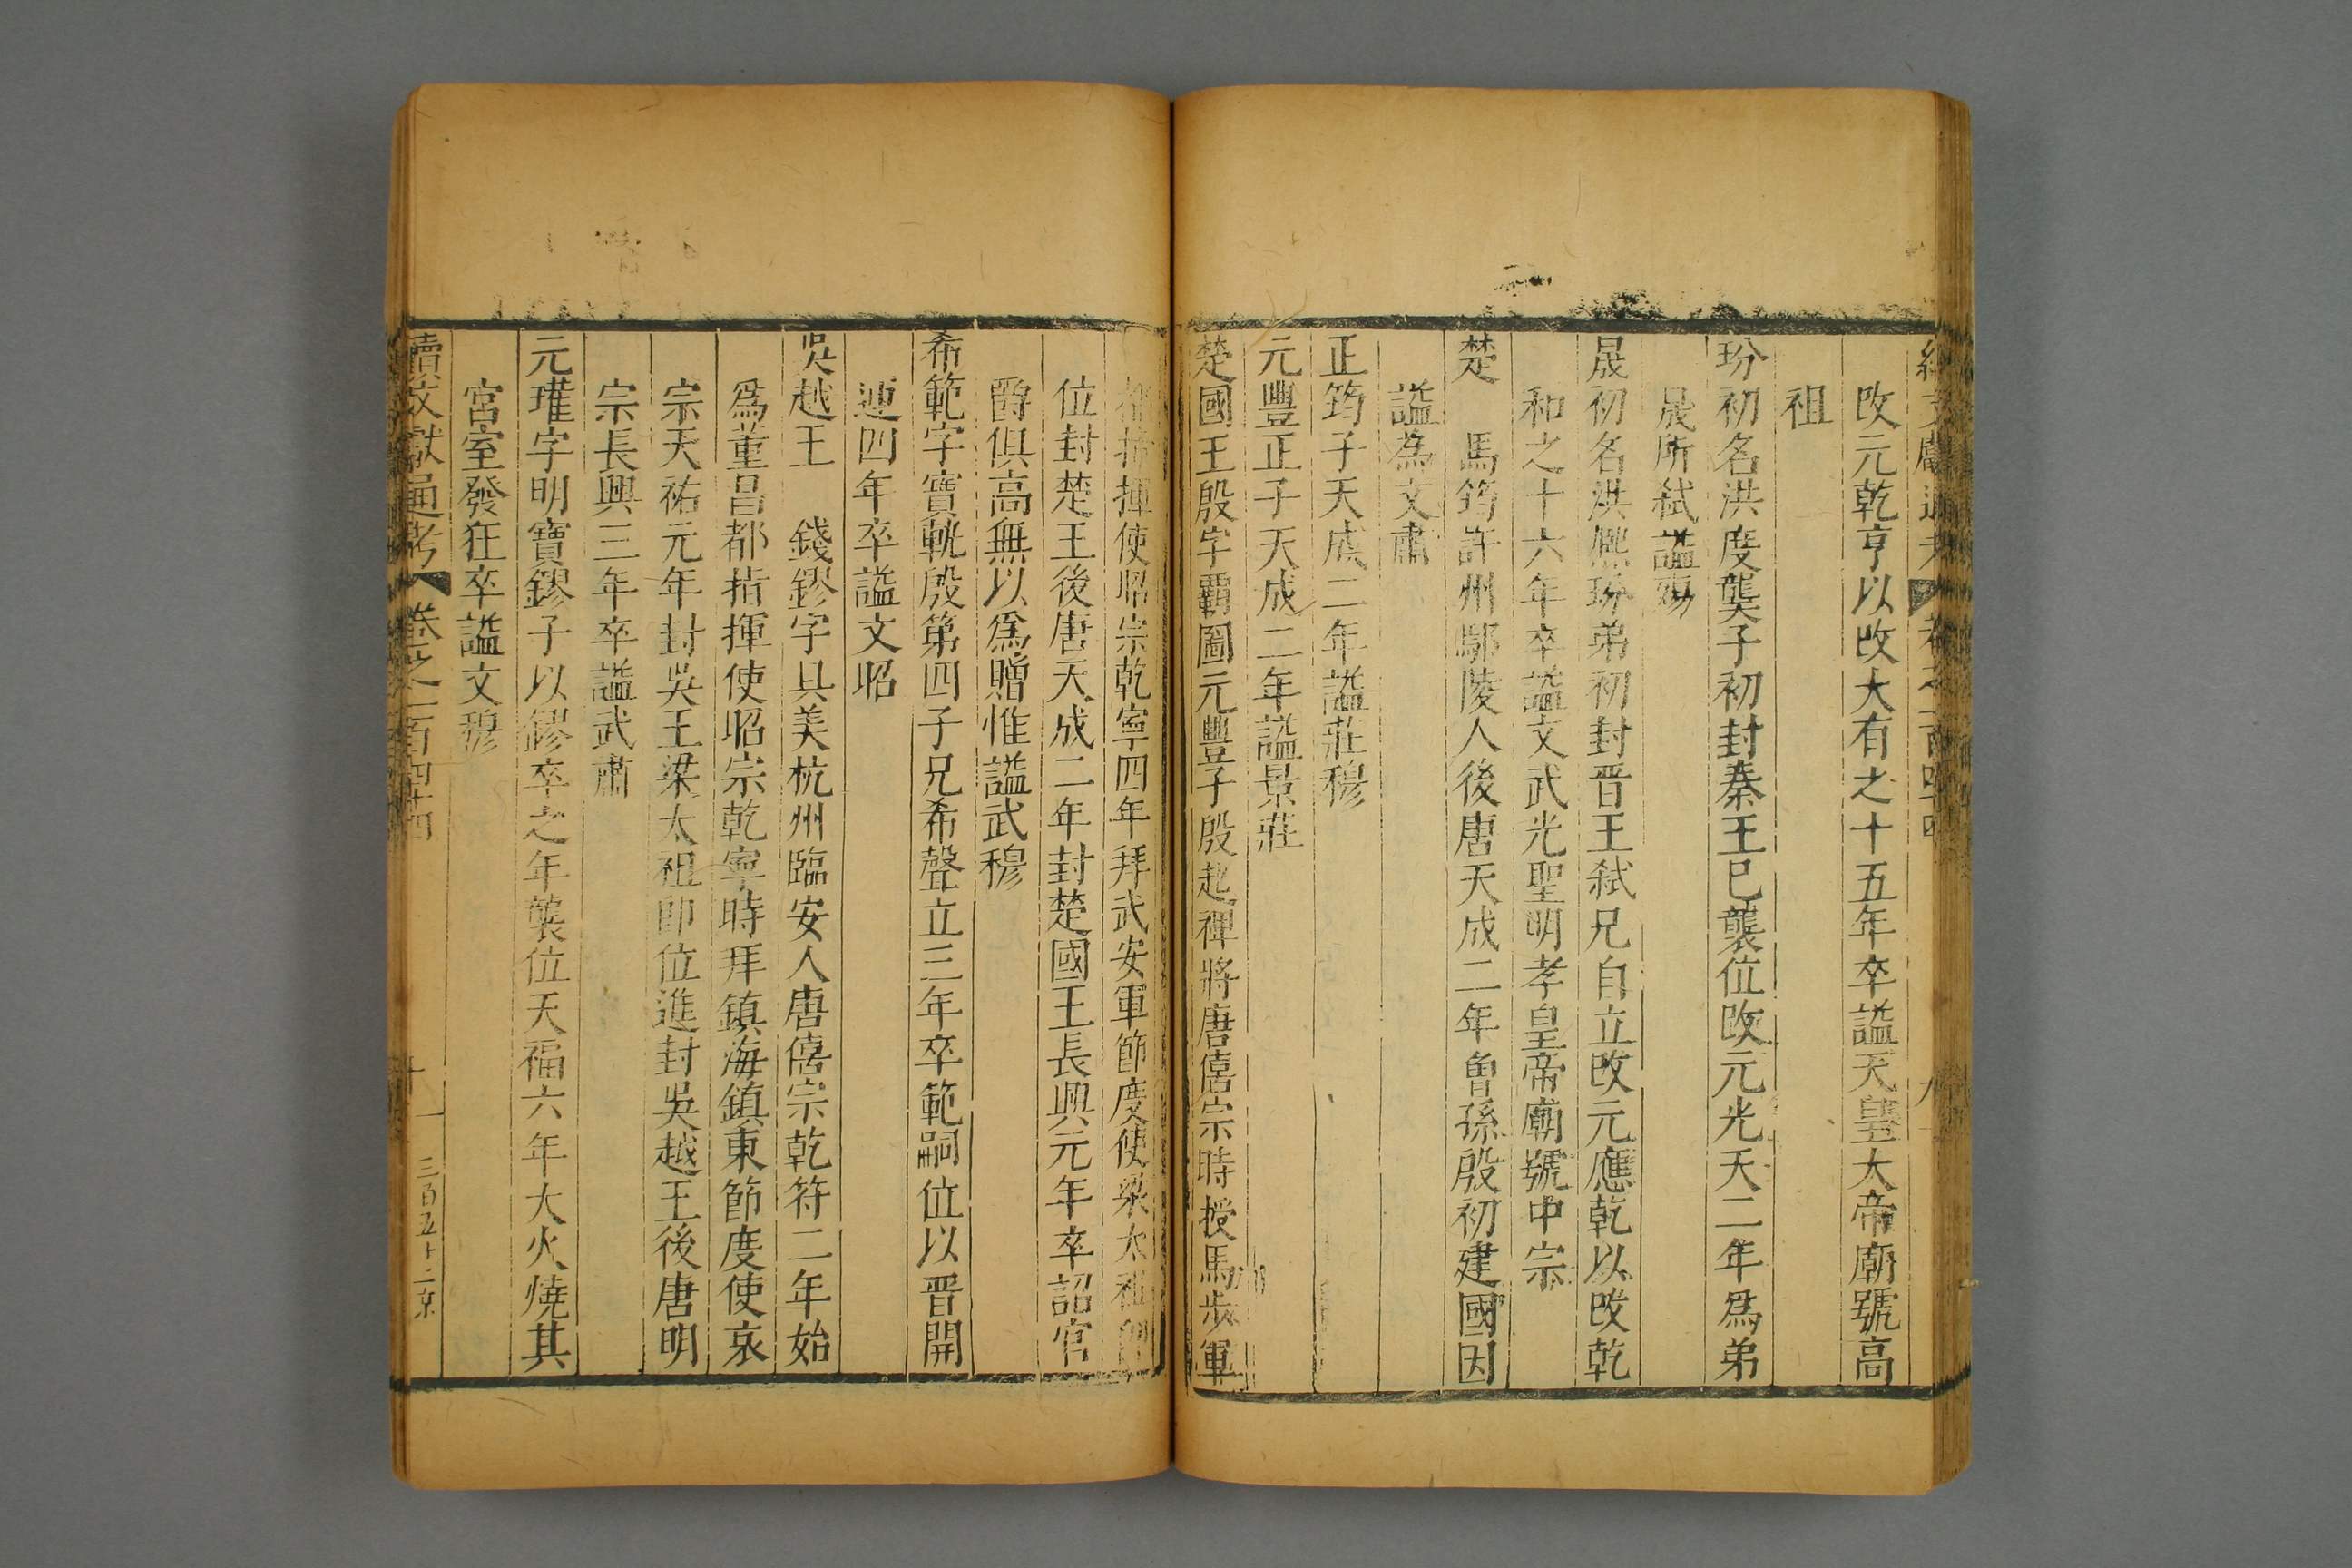 續文獻通考 卷之一百四十四 九
改元乾亨以改大有之十五年卒謚天皇大帝廟號高
祖
玢初名洪度龑子初封秦王巳襲位改元光天二年爲弟
晟所弒謚殤
晟初名洪熙玢弟初封晋王弒兄自立改元應乾以改乾
和之十六年卒謚文武光聖明孝皇帝廟號中宗
楚 馬筠許州鄢陵人後唐天成二年曾孫殷初建國因
謚為文肅
正筠子天成二年謚莊穆
元豐正子天成二年謚景莊
楚國王殷字霸圖元豐子殷起禆將唐僖宗時授馬步軍
指揮使昭宗乾寧四年拜武安軍節度使梁太祖即
位封楚王後唐天成二年封楚國王長興元年卒詔官
爵俱高無以爲贈惟謚武穆
希範字寶䡄殷第四子兄希聲立三年卒範嗣位以晋開
運四年卒謚文昭
吳越王 錢鏐字具美杭州臨安人唐僖宗乾符二年始
爲董昌都指揮使昭宗乾寧時拜鎮海鎮東節度使哀
宗天祐元年封吳王梁太祖即位進封吳越王後唐明
宗長興三年卒謚武肅
元瓘字明寶鏐子以鏐卒之年襲位天福六年大火燒其
宮室發狂卒謚文穆
續文獻通考 卷之一百四十四 十 三百五十二